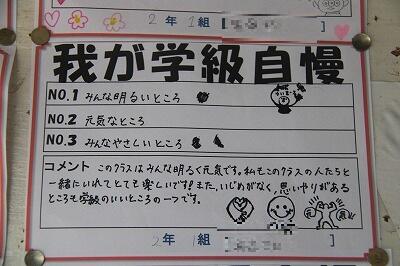 2年 1組
我が学級自慢
NO.1 みんな明るいところ
NO.2 元気なところ
NO.3 みんなやさしいところ
コメント このクラスはみんな明るく元気です。私もこのクラスの人たちと
一緒にいれてとても楽しいです!また、いじめがなく、思いやりがある
ところも学級のいいところの一つです。
2年 1組